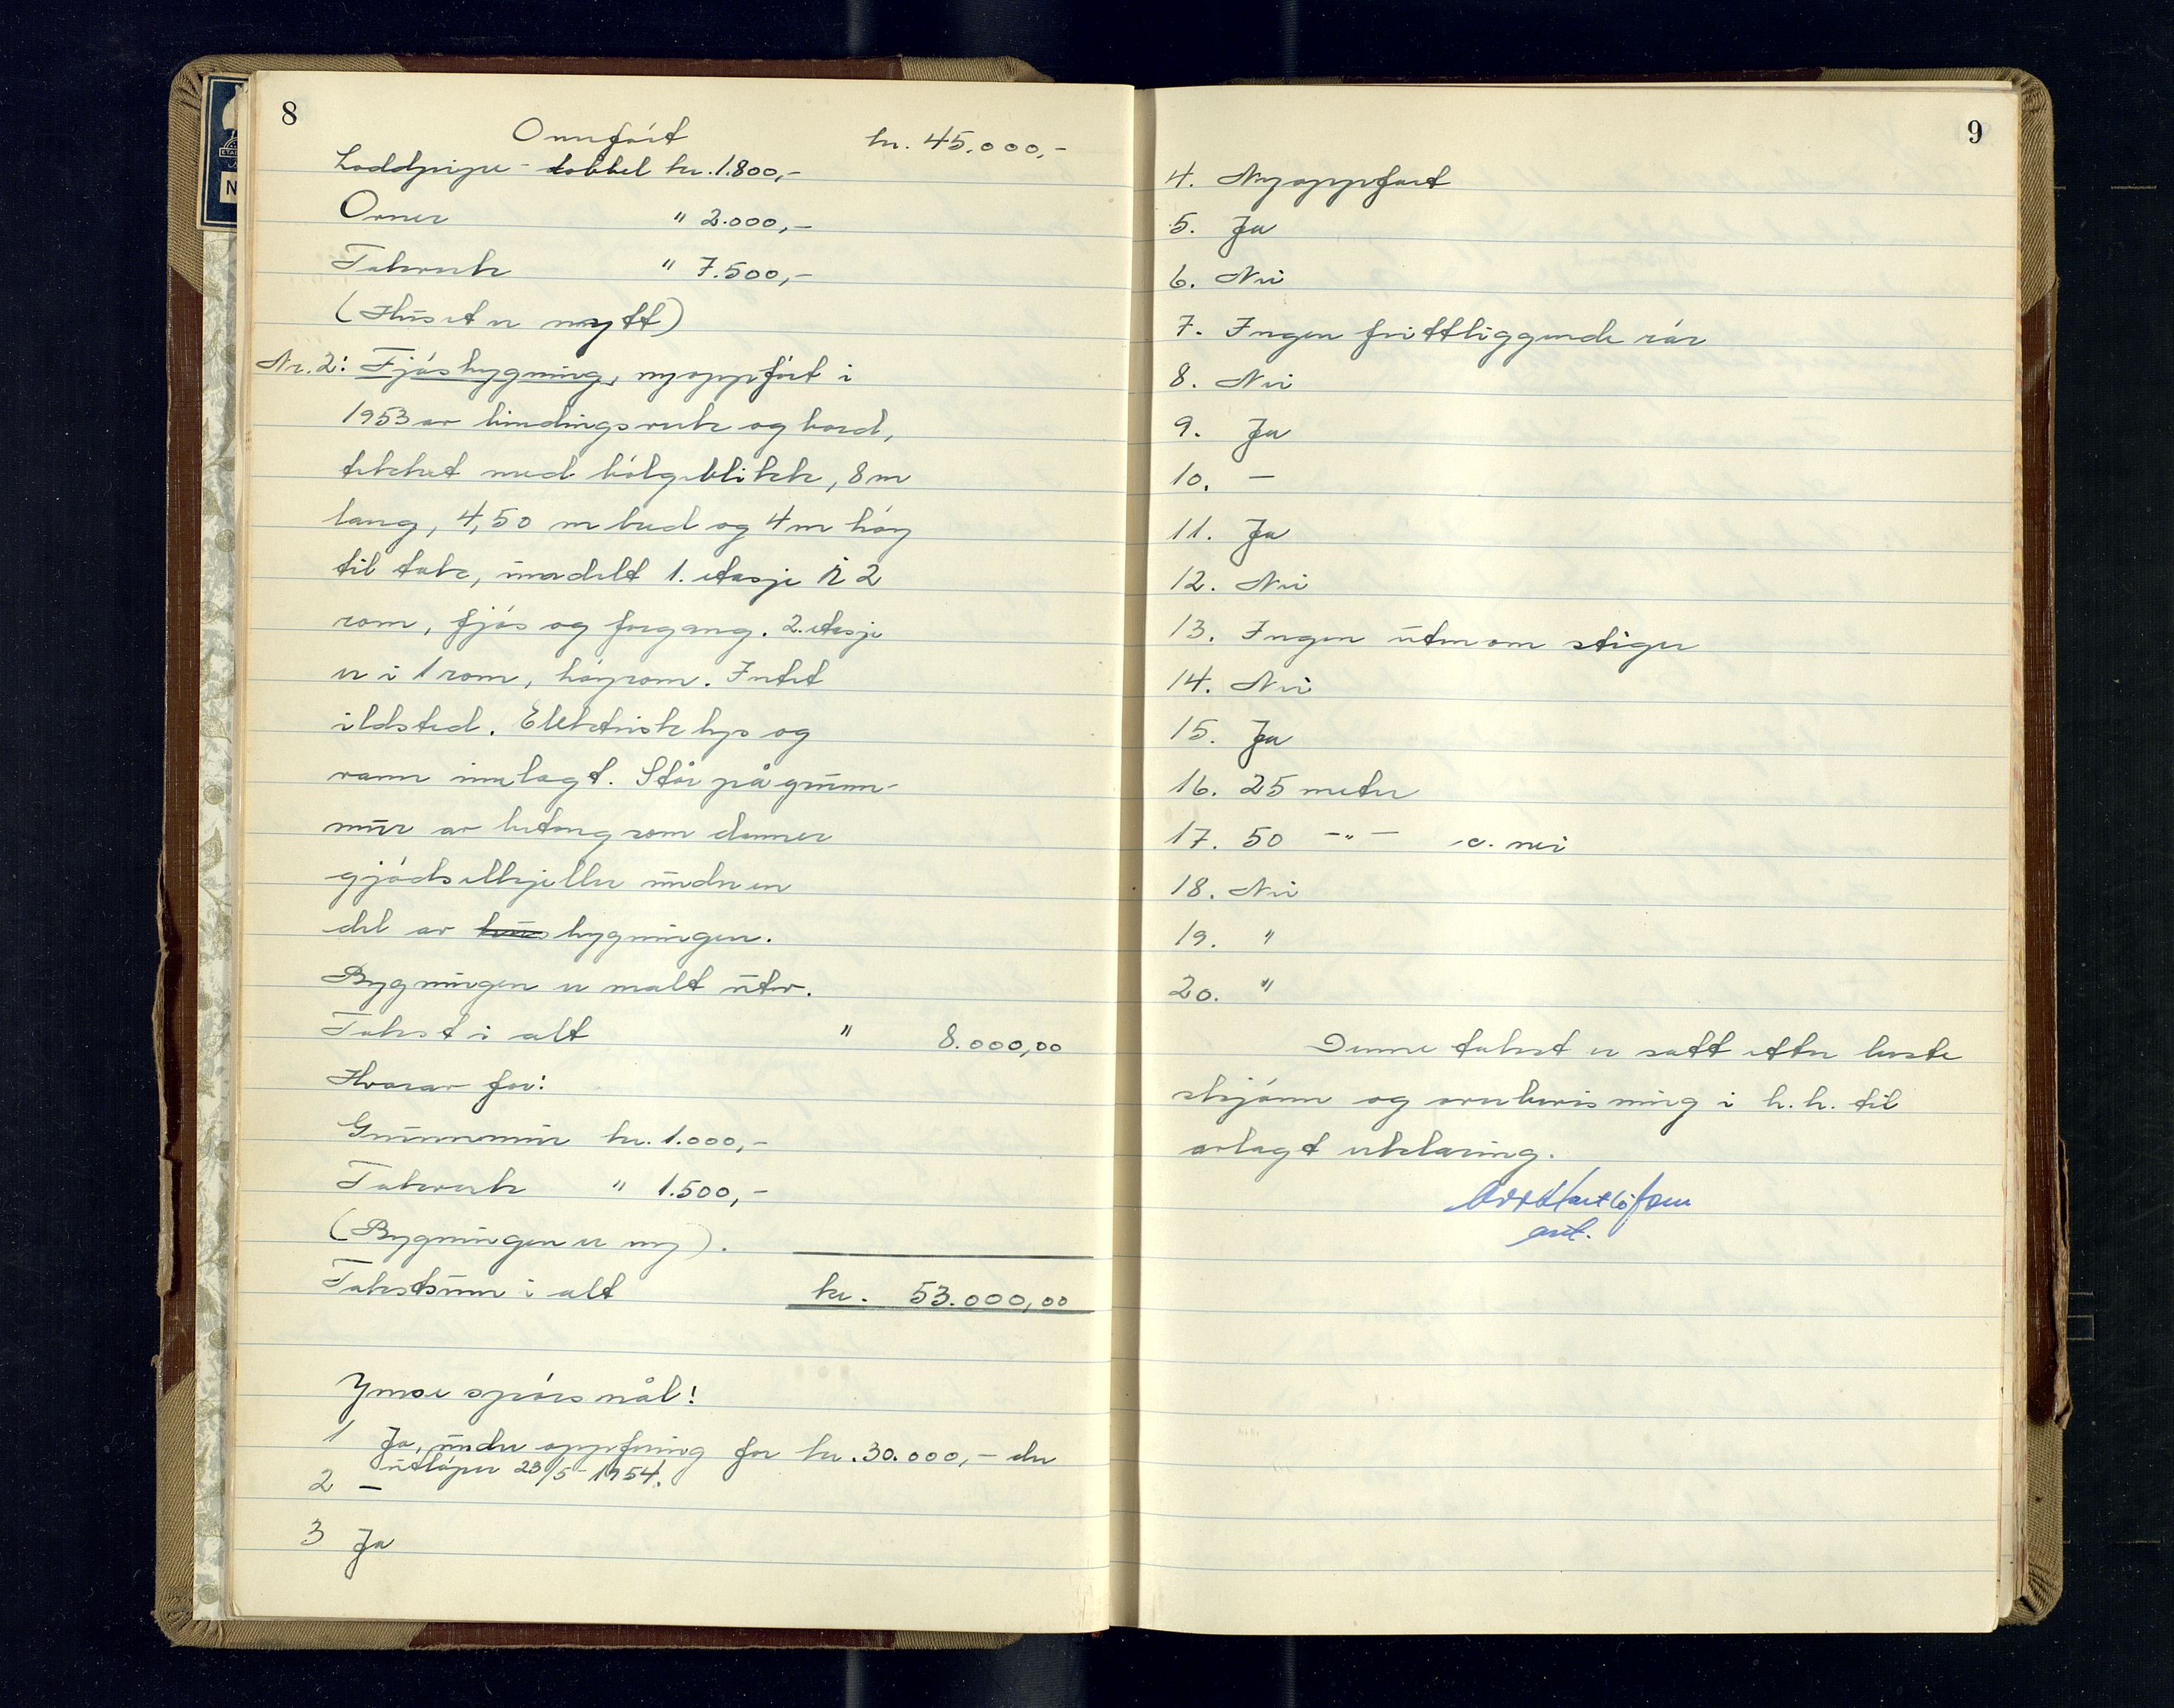 8
Ovnfört kr. 45.000,-
Loddpipe - dobbel kr. 1.800,-
Ovner " 2.000,-
Takverk " 7.500,-
(Huset er nytt)
Nr. 2: Fjösbygning, nyoppfört i
1953 av bindingsverk og bord,
tekket med bölgeblikk, 8 m
lang, 4,50 m bred og 4 m höy
til tak, innredelt 1. etasje i 2
rom, fjös og forgang. 2. etasje
er i 1 rom, höyrom. Intet
ildsted. Elektrisk lys og
vann innlagt. Står på grunn-
mur av betong som danner
gjödselkjeller under en
del av hus bygningen.
Bygningen er malt utv.
Takst i alt " 8.000,00
Hvorav for:
Grunnmur kr. 1.000,-
Takverk " 1.500,-
(Bygningen er ny).
Takstsum i alt kr. 53.000,00
Ymse spörsmål:
1 Ja, under oppföring for kr. 30.000,- der
utlöper 23/5-1954.
2 —
3 Ja
9
4. Nyoppfört
5. Ja
6. Nei
7. Ingen frittliggende rör
8. Nei
9. Ja
10. —
11. Ja
12. Nei
13. Ingen utenom stiger
14. Nei
15. Ja
16. 25 meter
17. 50 -"- c. nei
18. Nei
19. "
20. "
Denne takst er satt etter beste
skjönn og overbevisning i h.h. til
avlagt erklæring.